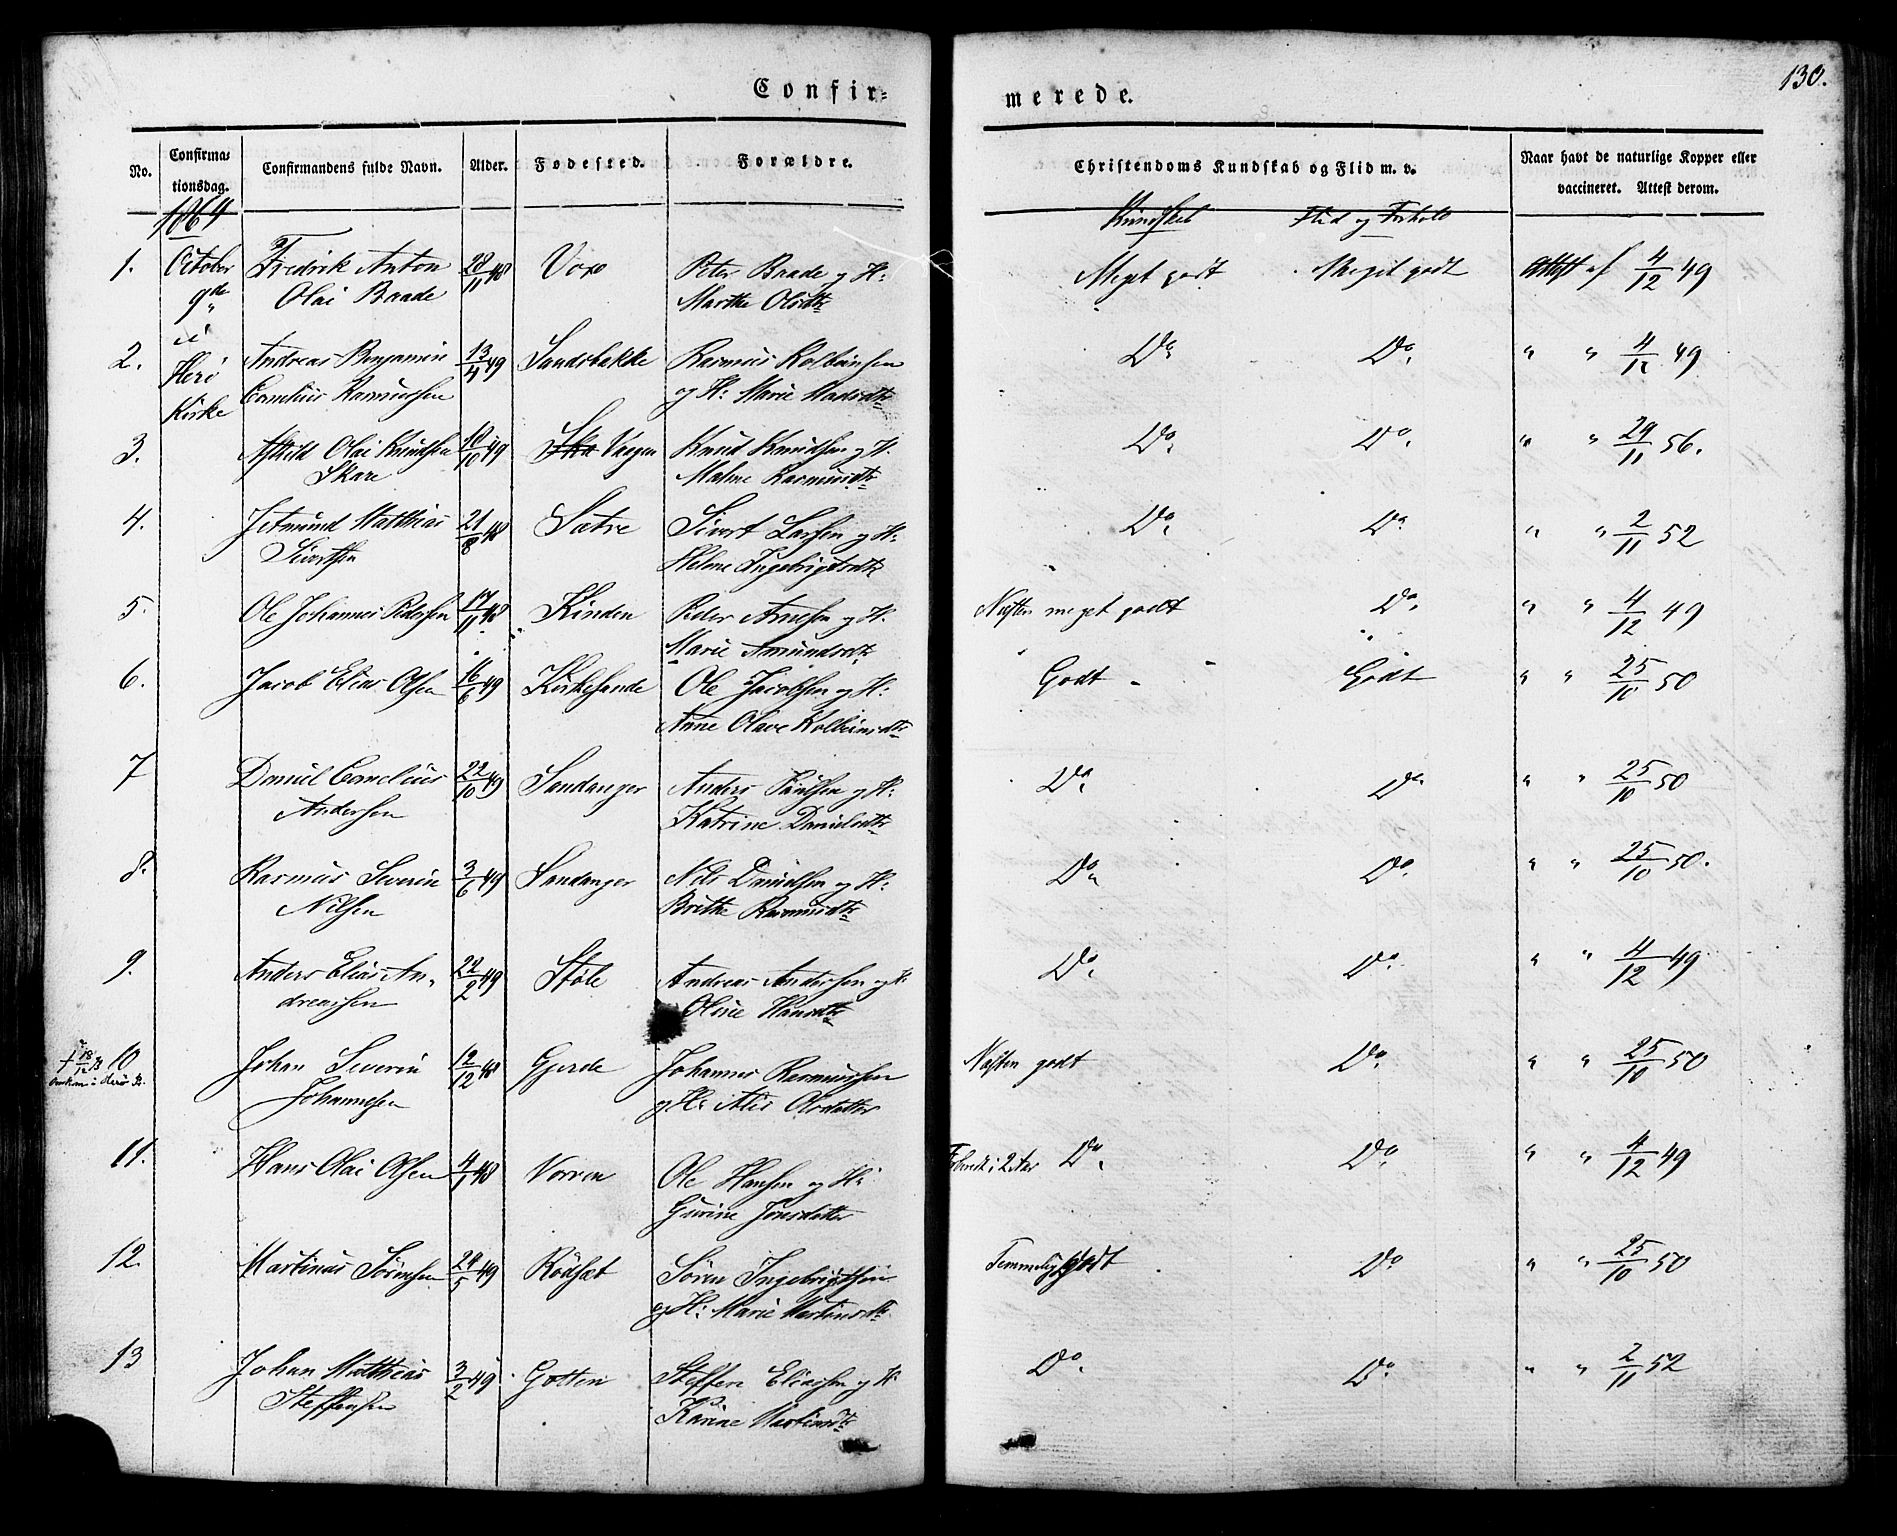 130.
Confir=
merede.
No.
Confirma=
tionsdag.
Confirmandens fulde Navn.
Alder.
Fødested.
Forældre.
Christendoms Kundskab og Flid m. v.
Naar havt de naturlige Kopper eller
vaccineret. Attest derom.
1864
Kundskab Flid og Forhold
1. October Fredrik Anton 28/11 48 Voxo Peter Baade og H: Meget godt Meget godt Attest af 4/12 49
9de Olai Baade Marthe Olsdtr
i
2. Herø Andreas Benjamin 13/4 49 Sandsbakke Rasmus Kolbeinsen Do Do " " 4/12 49
Kirke Cornelius Rasmussen og H: Marie Madsdtr
3. Olai Knudsen 18/10 49 Ska Vaagen Knud Knudsen og H. Do Do " " 29/11 56.
Skare Malene Rasmusdtr
4. Jetmund Matthias 21/8 48 Sætre Sivert Larsen og H: Do Do " " 2/11 52
Sivertsen Helene Ingebrigtsdtr
5. Ole Johannes Pedersen 17/11 48 Kinden Peder Arnesen og H. Næsten meget godt Do " " 4/12 49
Marie Amundsdtr
6. Jacob Elias Olsen 16/6 49 Kirkesande Ole Jacobsen og H: Godt Godt " " 25/10 50
Anne Olave Kolbeinsdtr
7 Daniel Cornelius 22/10 49 Sandanger Anders Paulsen og H: Do Do " " 25/10 50
Andersen Katrine Danielsdtr
8. Rasmus Severin 3/6 49 Sandanger Nils Danielsen og H: Do Do " " 25/10 50.
Nilsen Brithe Rasmusdtr
9. Anders Elias An- 22/2 49 Støle Andreas Andersen og H: Do Do " " 4/12 49
dreassen Oline Hansdtr
† 18/12
10 Johan Severin 12/12 48 Gjerde Johannes Rasmussen Næsten godt Do " " 25/10 50
i Herø
Johannesen og H: Olsdatter
11. Hans Olai Olsen 4/1 48 Vorren Ole Hansen og H: i 2 Aar Do Do " " 4/12 49
Gurine Jonsdatter
12. Martinus Sørensen 29/5 49 Rødsæt Søren Ingebrigtsen Temmelig godt Do " " 25/10 50
og H: Marie Martinsdtr
13 Johan Matthias 3/2 49 Gotten Steffen Eliassen og H: Do Do " " 2/11 52
Steffensen Karine Martinsdtr